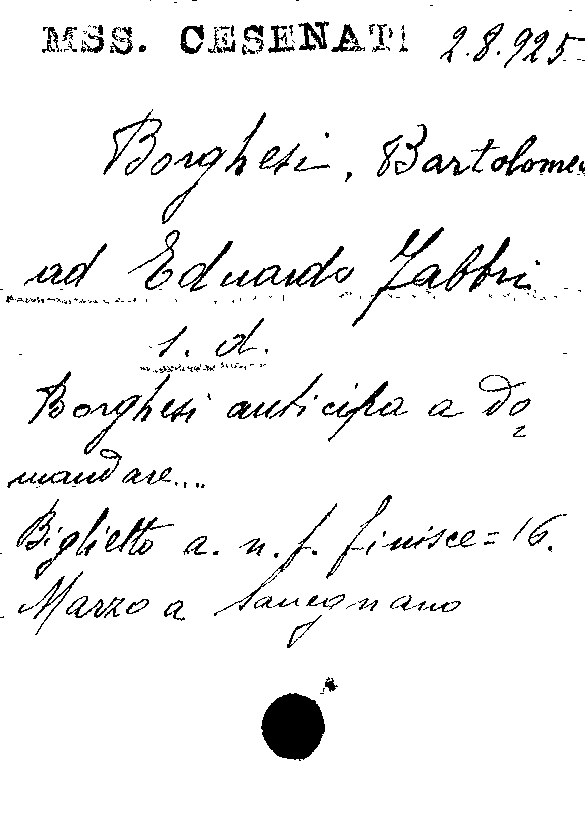 MSS. CESENATI 2.8.925
Borghesi, Bartolomeo
ad Eduardo Fabbri
s. d.
Borghesi anticipa a do=
mandare...
Biglietto a. n. f. finisce = 16.
Marzo a Savegnano